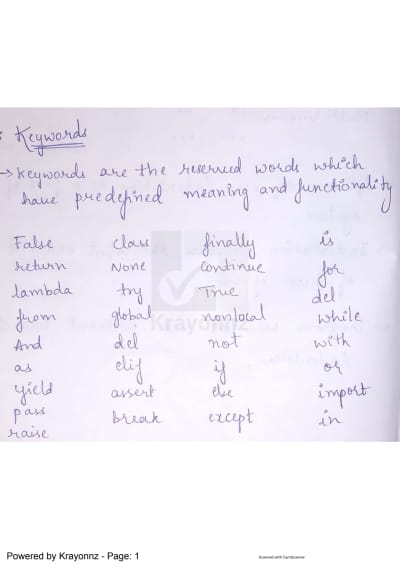 Keywords
→ Keywords are the reserved words which
have predefined meaning and functionality
False class finally is
return None continue for
lambda try True del
from global nonlocal while
And del not with
as elif if or
yield assert else import
pass break except in
raise
Krayonnz
Powered by Krayonnz - Page: 1
Scanned with CamScanner